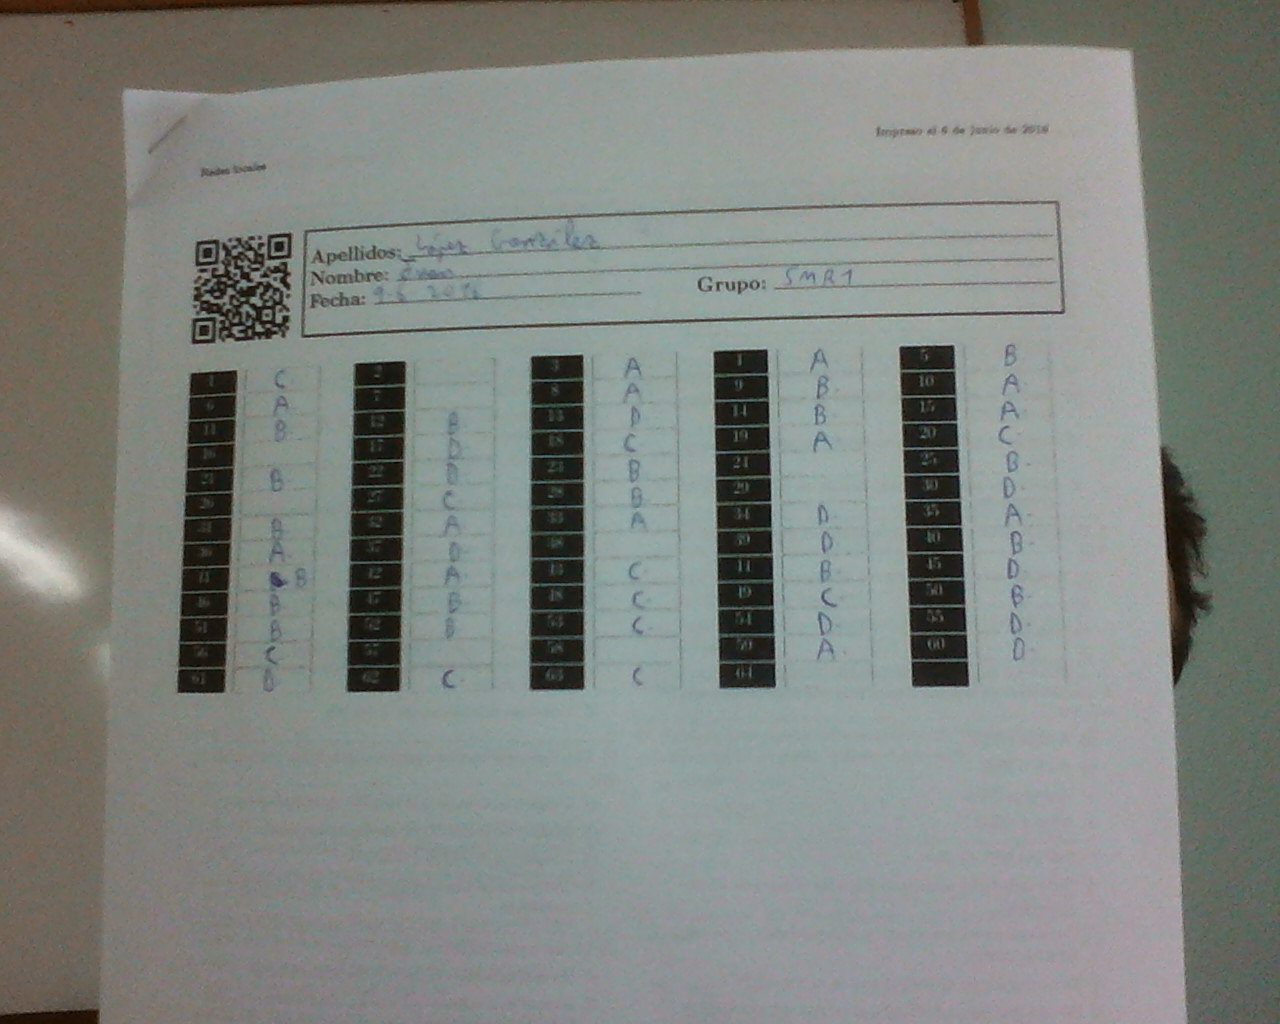 Impreso el 6 de junio de 2016
Redes locales
Apellidos: López González
Nombre:
Fecha: 9-6 2016 Grupo: SMR1
1 C 2 3 A 4 A 5 B
6 A 7 8 A 9 B 10 A
11 B 12 B 13 D 14 B 15 A
16 17 D 18 C 19 A 20 C
21 B 22 D 23 B 24 25 B
26 27 C 28 B 29 30 D
31 B 32 A 33 A 34 D 35 A
36 A 37 D 38 39 D 40 B
41 B 42 A 43 C 44 B 45 D
46 B 47 B 48 C 49 C 50 B
51 B 52 B 53 C 54 D 55 D
56 C 57 58 59 A 60 D
61 D 62 C 63 C 64